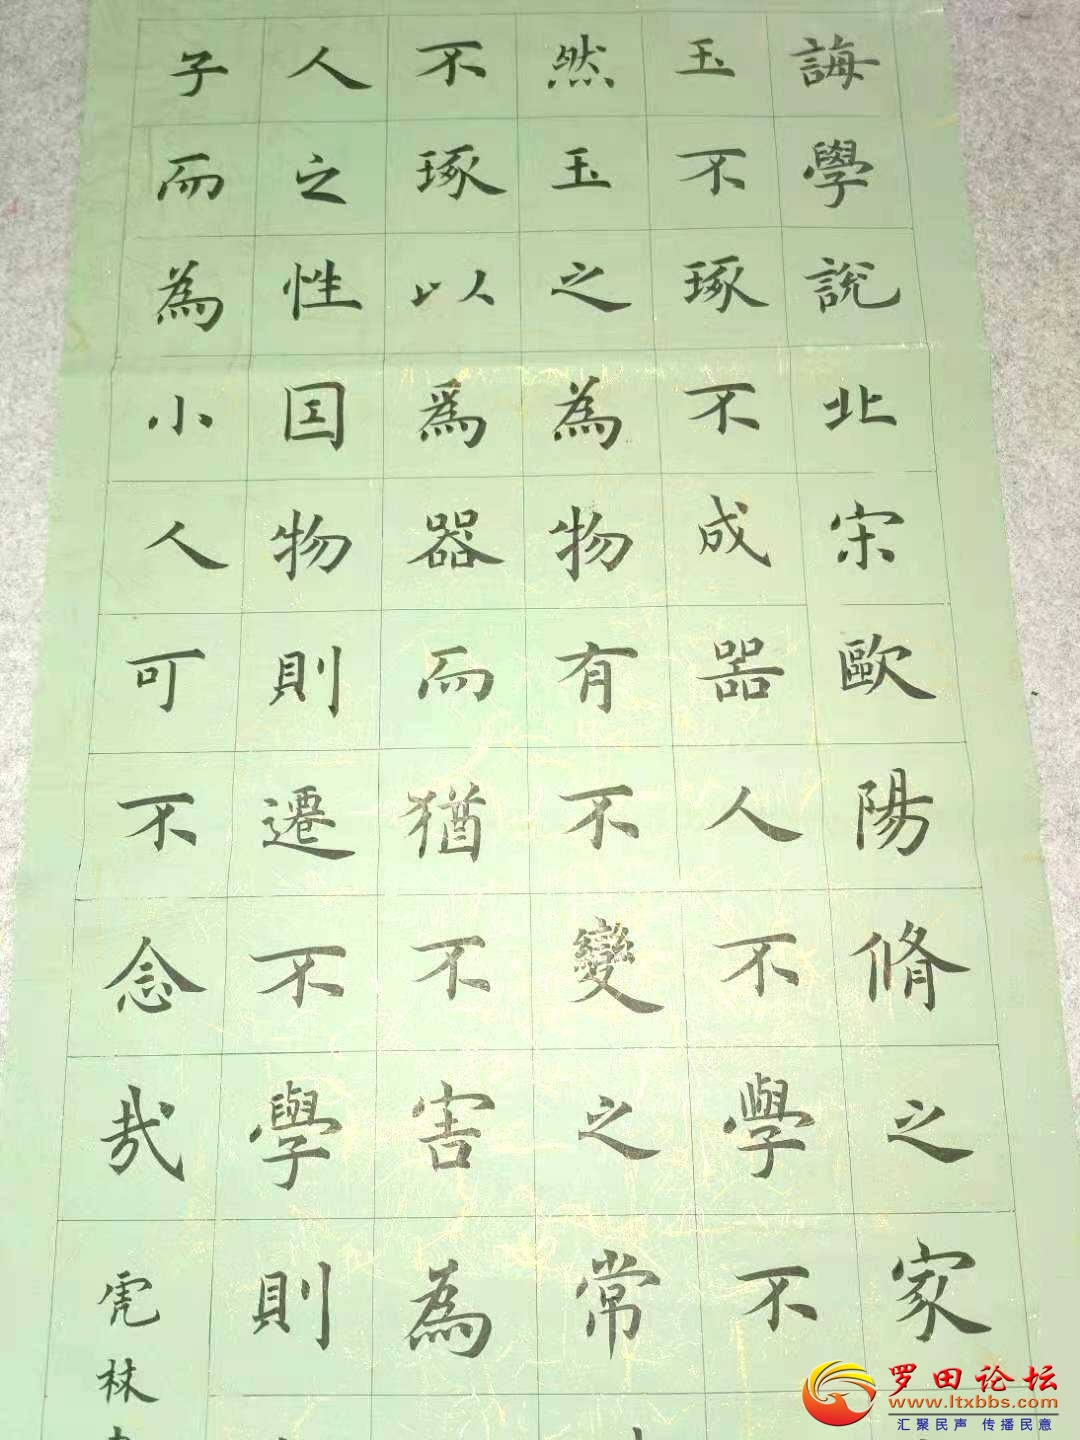 誨學説北宋歐陽脩之家
玉不琢不成噐人不學不
然玉之為物有不變之常
不琢以爲器而猶不害為
人之性因物則遷不學則
子而為小人可不念哉
虎林
罗田论坛
www.ltxbbs.com
汇聚民声 传播民意